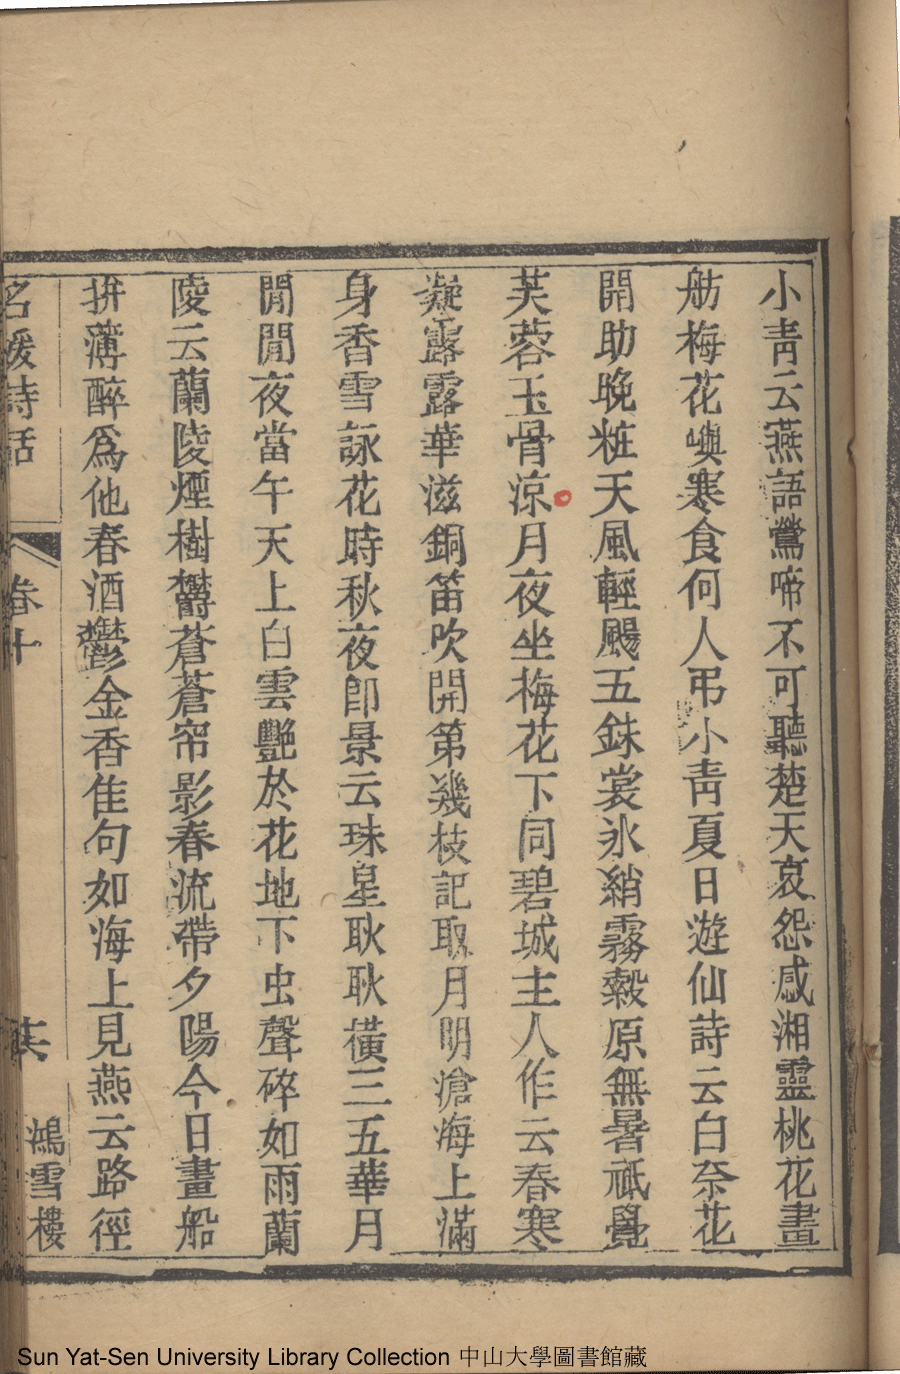 小靑云燕語鶯啼不可聽楚天哀怨感湘靈桃花畫
舫梅花嶼寒食何人弔小靑夏日遊仙詩云白奈花
開助晚粧天風輕颺五銖裳氷綃霧縠原無暑祗覺
芙蓉玉骨涼月夜坐梅花下同碧城主人作云春寒
凝露露華滋銅笛吹開第幾枝記取月明滄海上滿
身香雪詠花時秋夜卽景云珠星耿耿橫三五華月
閒閒夜當午天上白雲艷於花地下虫聲碎如雨蘭
陵云蘭陵煙樹欝蒼蒼帘影春流帶夕陽今日畫船
拚薄醉爲他春酒鬱金香隹句如海上見燕云路徑
名媛詩話
卷十
十六
鴻雪樓
Sun Yat-Sen University Library Collection 中山大學圖書館藏